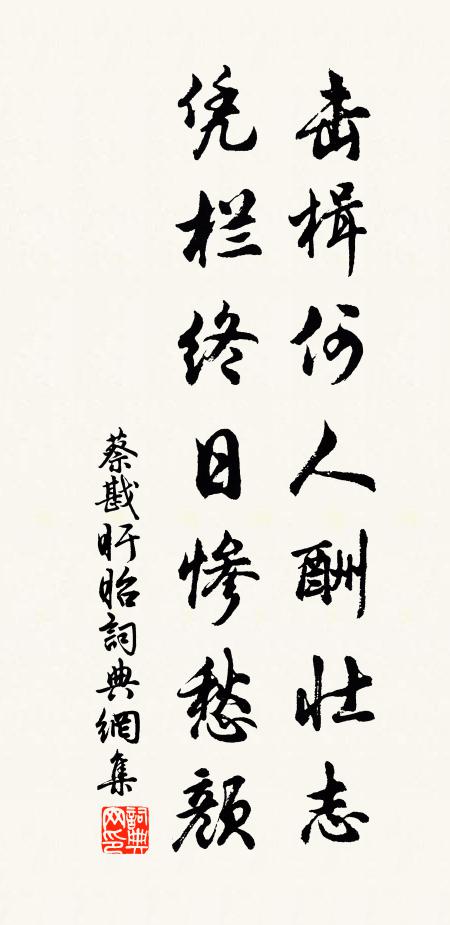 击楫何人酬壮志
凭栏终日惨愁颜
蔡戡盱眙詞典網集
詞典
网印